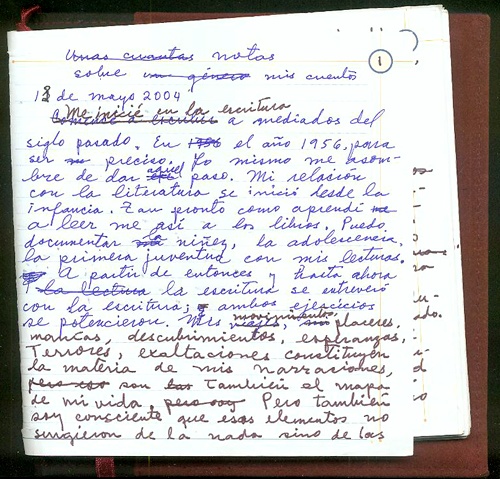 Unas cuantas notas
sobre un género mis cuento
1
13 de mayo 2004
Me inicié en la escritura
Comencé a escribir a mediados del
siglo pasado. En 1956 el año 1956, para
ser no preciso. Yo mismo me asom-
bre de dar aquel paso. Mi relación
con la literatura se inició desde la
infancia. Tan pronto como aprendí me
a leer me así a los libros. Puedo
documentar la niñez, la adolescencia,
la primera juventud con mis lecturas.
A partir de entonces y hasta ahora
la lectura la escritura se entreveró
con la escritura; y ambos ejercicios
se potenciaron. Mis movimientos
viajes, placeres,
manías, descubrimientos, esperanzas,
Terrores, exaltaciones constituyen
la materia de mis narraciones,
pero eso son las También el mapa
de mi vida, pero soy Pero también
soy consciente que esos elementos no
surgieron de la nada sino de las